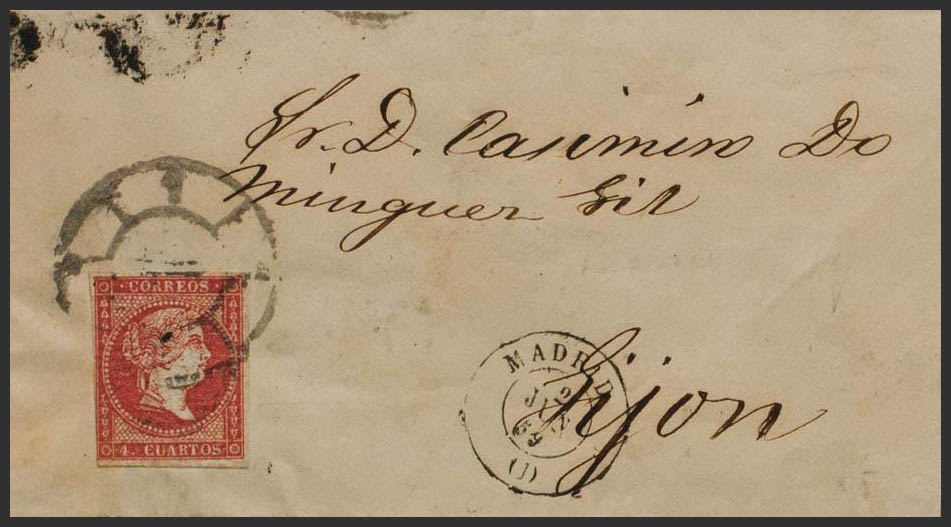 Sr. D. Casimiro Do
minguez Gil
CORREOS
4 CUARTOS
MADRID
2
JUN
(1)
Gijon